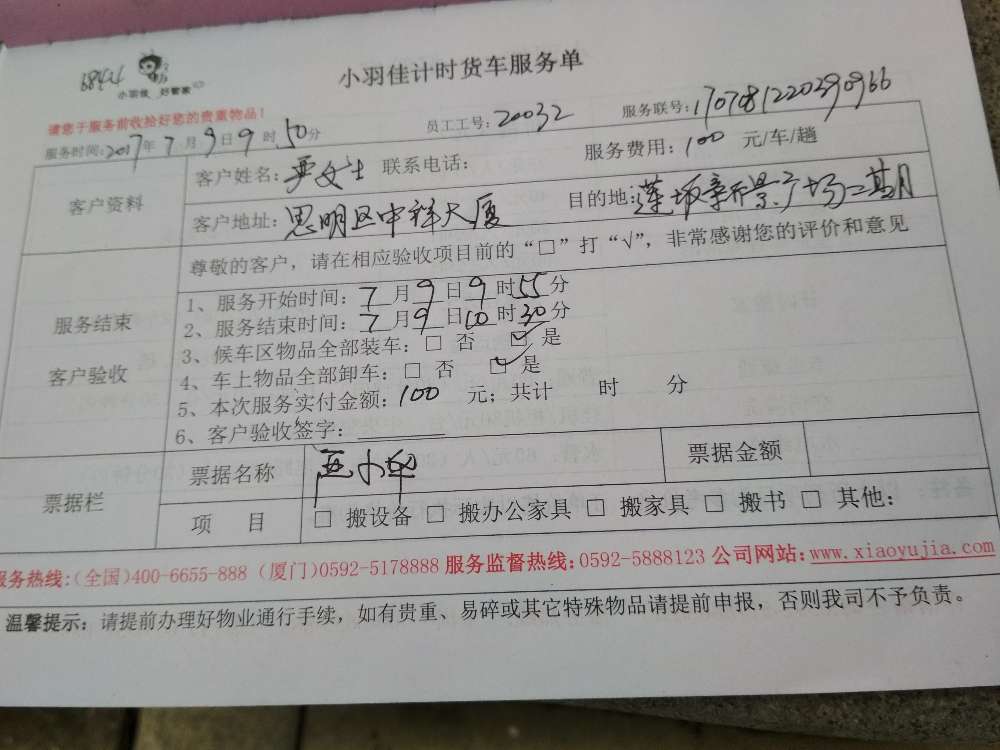 68424
小羽佳 好管家
小羽佳计时货车服务单
请您于服务前收拾好您的贵重物品！
服务时间：2017年7月9日9时50分 员工工号：20032 服务联号：1707081220290966
客户资料
客户姓名：严女士 联系电话： 服务费用：100 元/车/趟
客户地址：思明区中祥大厦 目的地：莲坂新景广场二期
服务结束
客户验收
尊敬的客户，请在相应验收项目前的“□”打“√”，非常感谢您的评价和意见
1、服务开始时间：7月9日9时55分
2、服务结束时间：7月9日10时30分
3、候车区物品全部装车：□ 否 ☑ 是
4、车上物品全部卸车：□ 否 ☑ 是
5、本次服务实付金额：100 元；共计 时 分
6、客户验收签字：
票据栏
票据名称 票据金额
项 目 □ 搬设备 □ 搬办公家具 □ 搬家具 □ 搬书 □ 其他：
服务热线：(全国)400-6655-888 (厦门)0592-5178888 服务监督热线：0592-5888123 公司网站：www.xiaoyujia.com
温馨提示：请提前办理好物业通行手续，如有贵重、易碎或其它特殊物品请提前申报，否则我司不予负责。